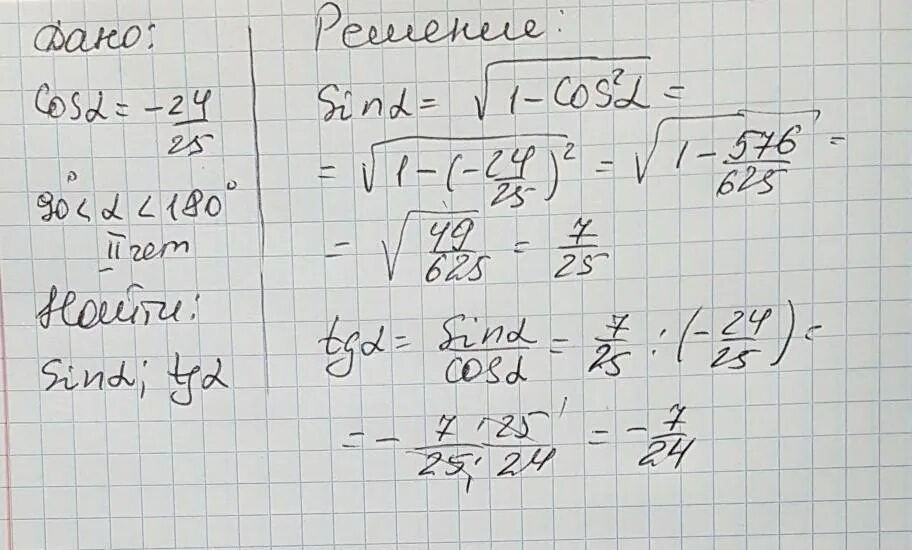 Дано:
Cosα = -24/25
90° < α < 180°
II чет
Найти:
Sinα; tgα
Решение:
Sinα = √(1 - Cos²α) =
= √(1 - (-24/25)²) = √(1 - 576/625) =
= √(49/625) = 7/25
tgα = Sinα/Cosα = 7/25 : (-24/25) =
= - 7·25/25·24 = -7/24